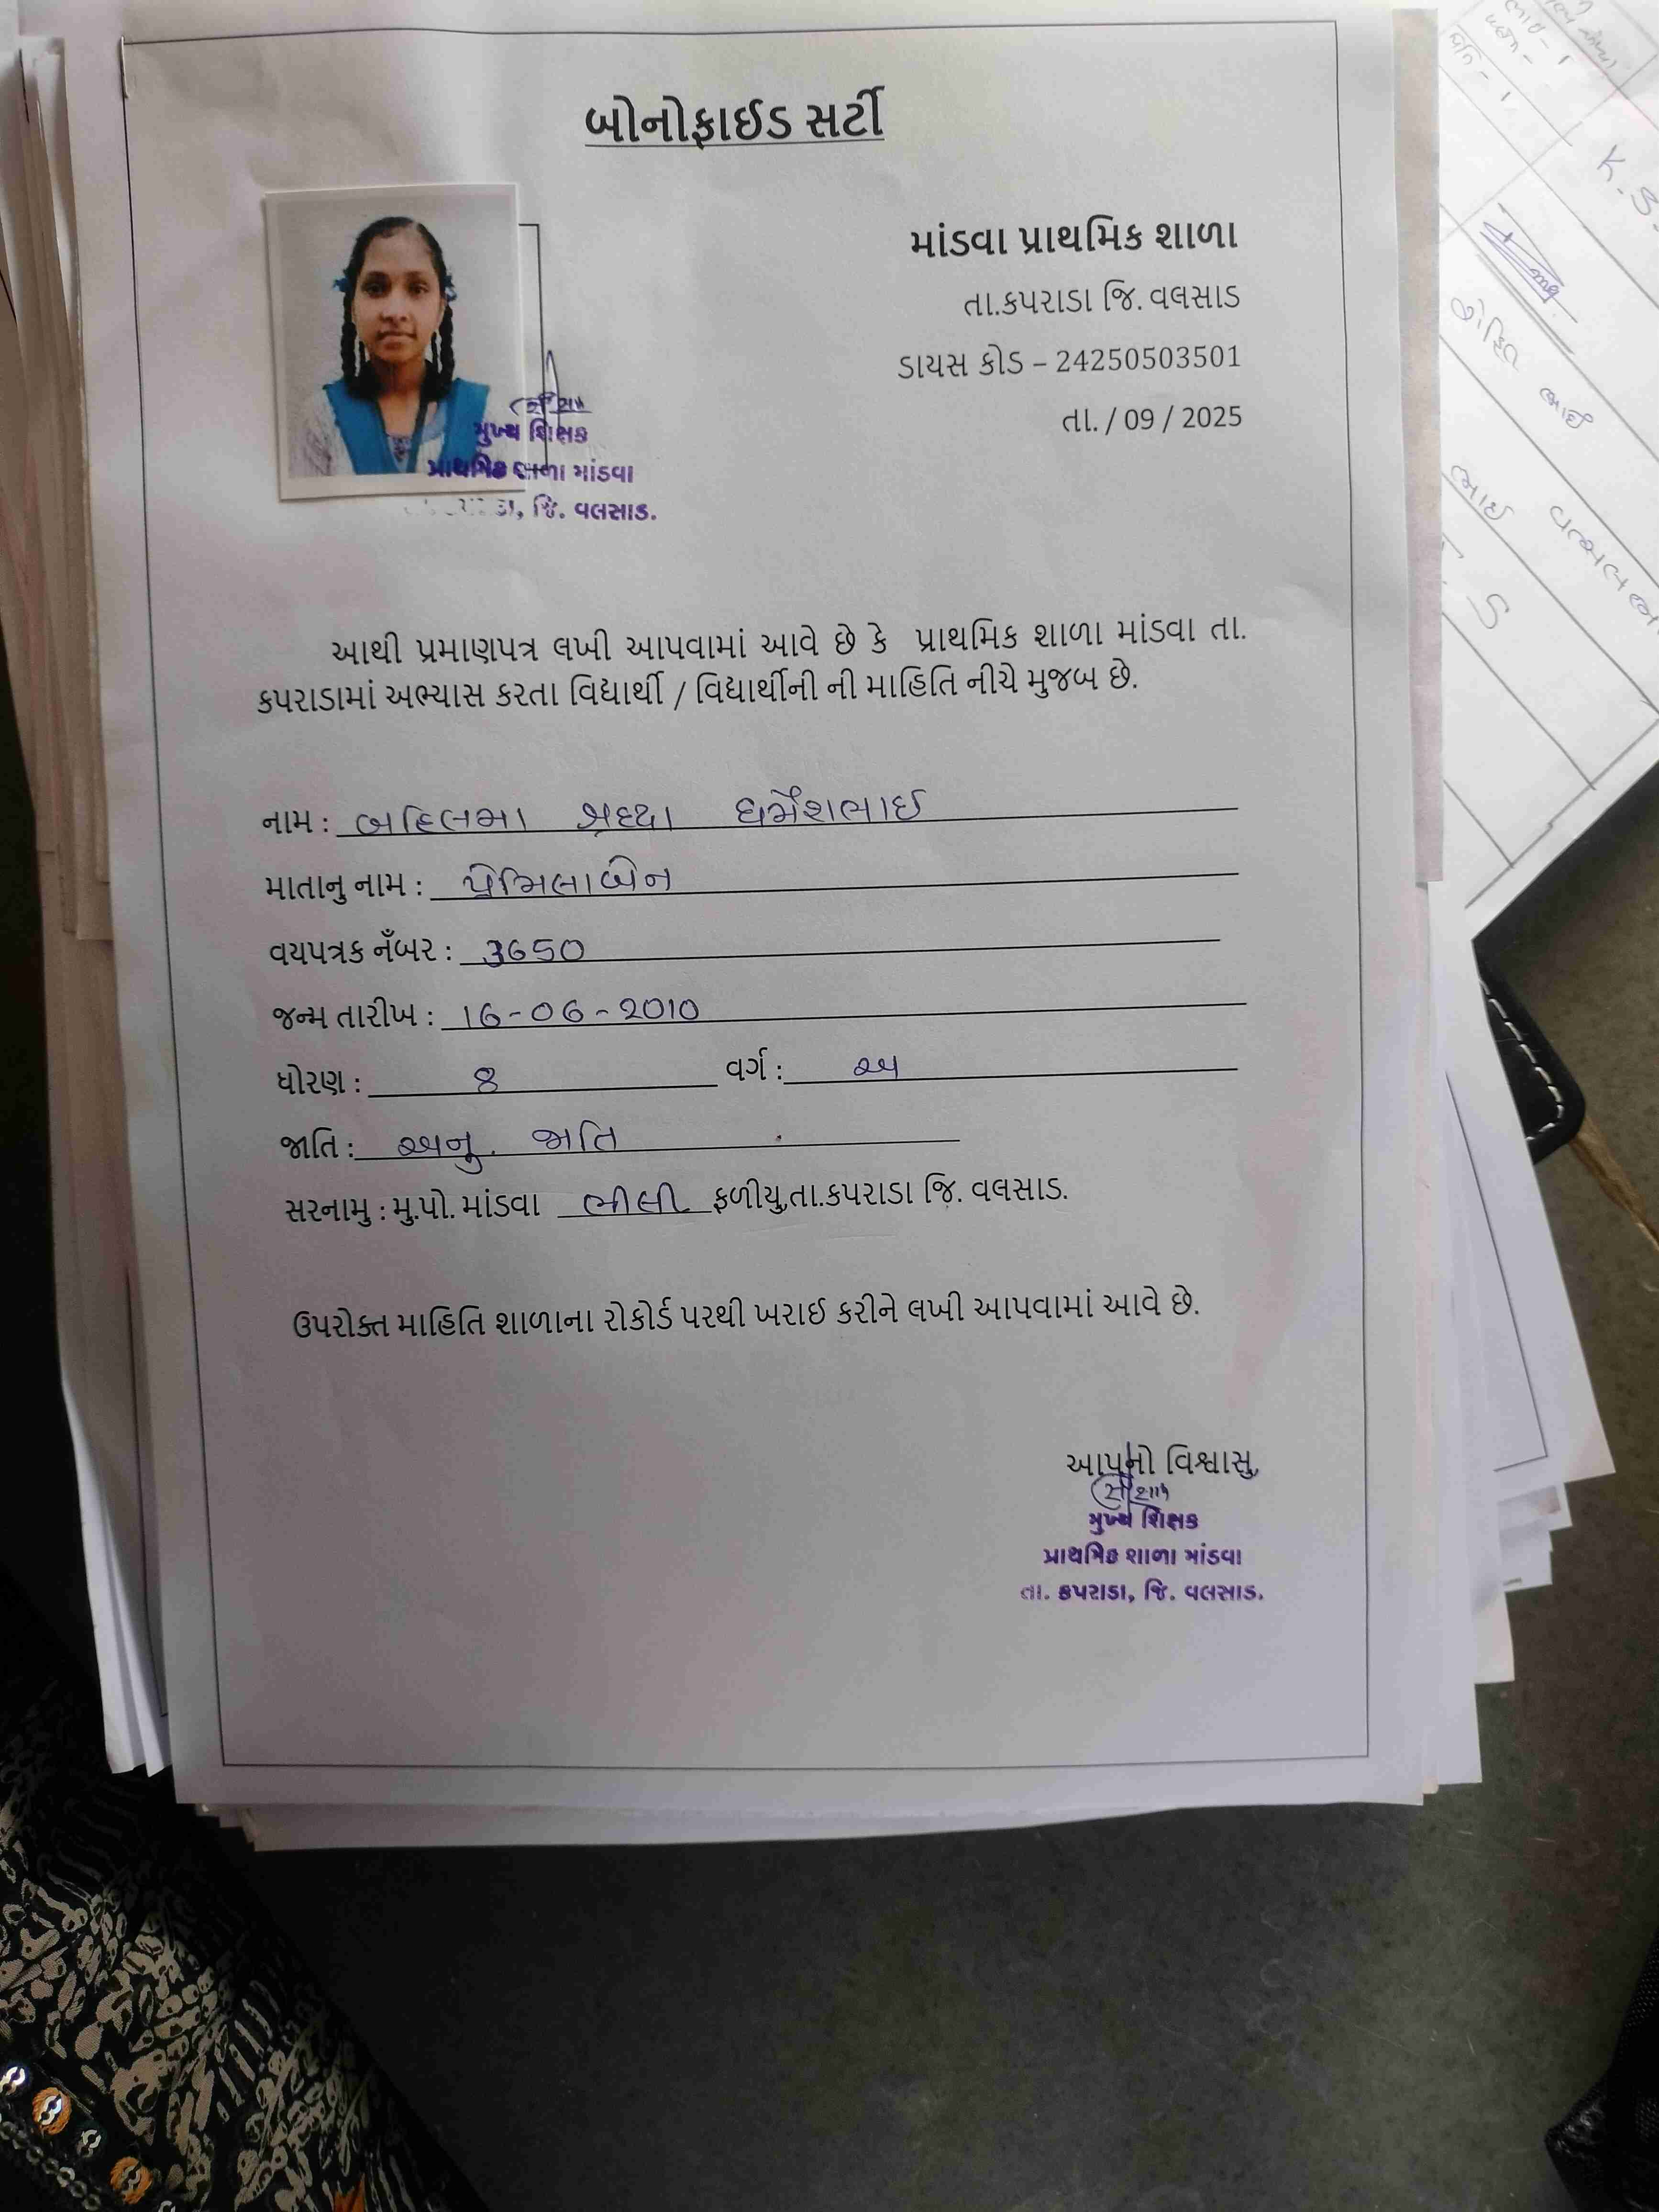 બોનોફાઈડ સર્ટી
માંડવા પ્રાથમિક શાળા
તા.કપરાડા જિ. વલસાડ
ડાયસ કોડ – 24250503501
તા. / 09 / 2025
મુખ્ય શિક્ષક
પ્રાથમિક શાળા માંડવા
જિ. વલસાડ.
આથી પ્રમાણપત્ર લખી આપવામાં આવે છે કે પ્રાથમિક શાળા માંડવા તા.
કપરાડામાં અભ્યાસ કરતા વિદ્યાર્થી / વિદ્યાર્થીની ની માહિતિ નીચે મુજબ છે.
નામ : શ્રધ્ધા ધર્મેશભાઈ
માતાનુ નામ : પ્રેમિલાબેન
વયપત્રક નઁબર : 3650
જન્મ તારીખ : 16-06-2010
ધોરણ : 8 વર્ગ : અ
જાતિ : અનુ. જાતિ
સરનામુ : મુ.પો. માંડવા ભીલી ફળીયુ,તા.કપરાડા જિ. વલસાડ.
ઉપરોક્ત માહિતિ શાળાના રોકોર્ડ પરથી ખરાઈ કરીને લખી આપવામાં આવે છે.
આપનો વિશ્વાસુ,
મુખ્ય શિક્ષક
પ્રાથમિક શાળા માંડવા
તા. કપરાડા, જિ. વલસાડ.
K.S.
ભાઈ
ભાઈ
S